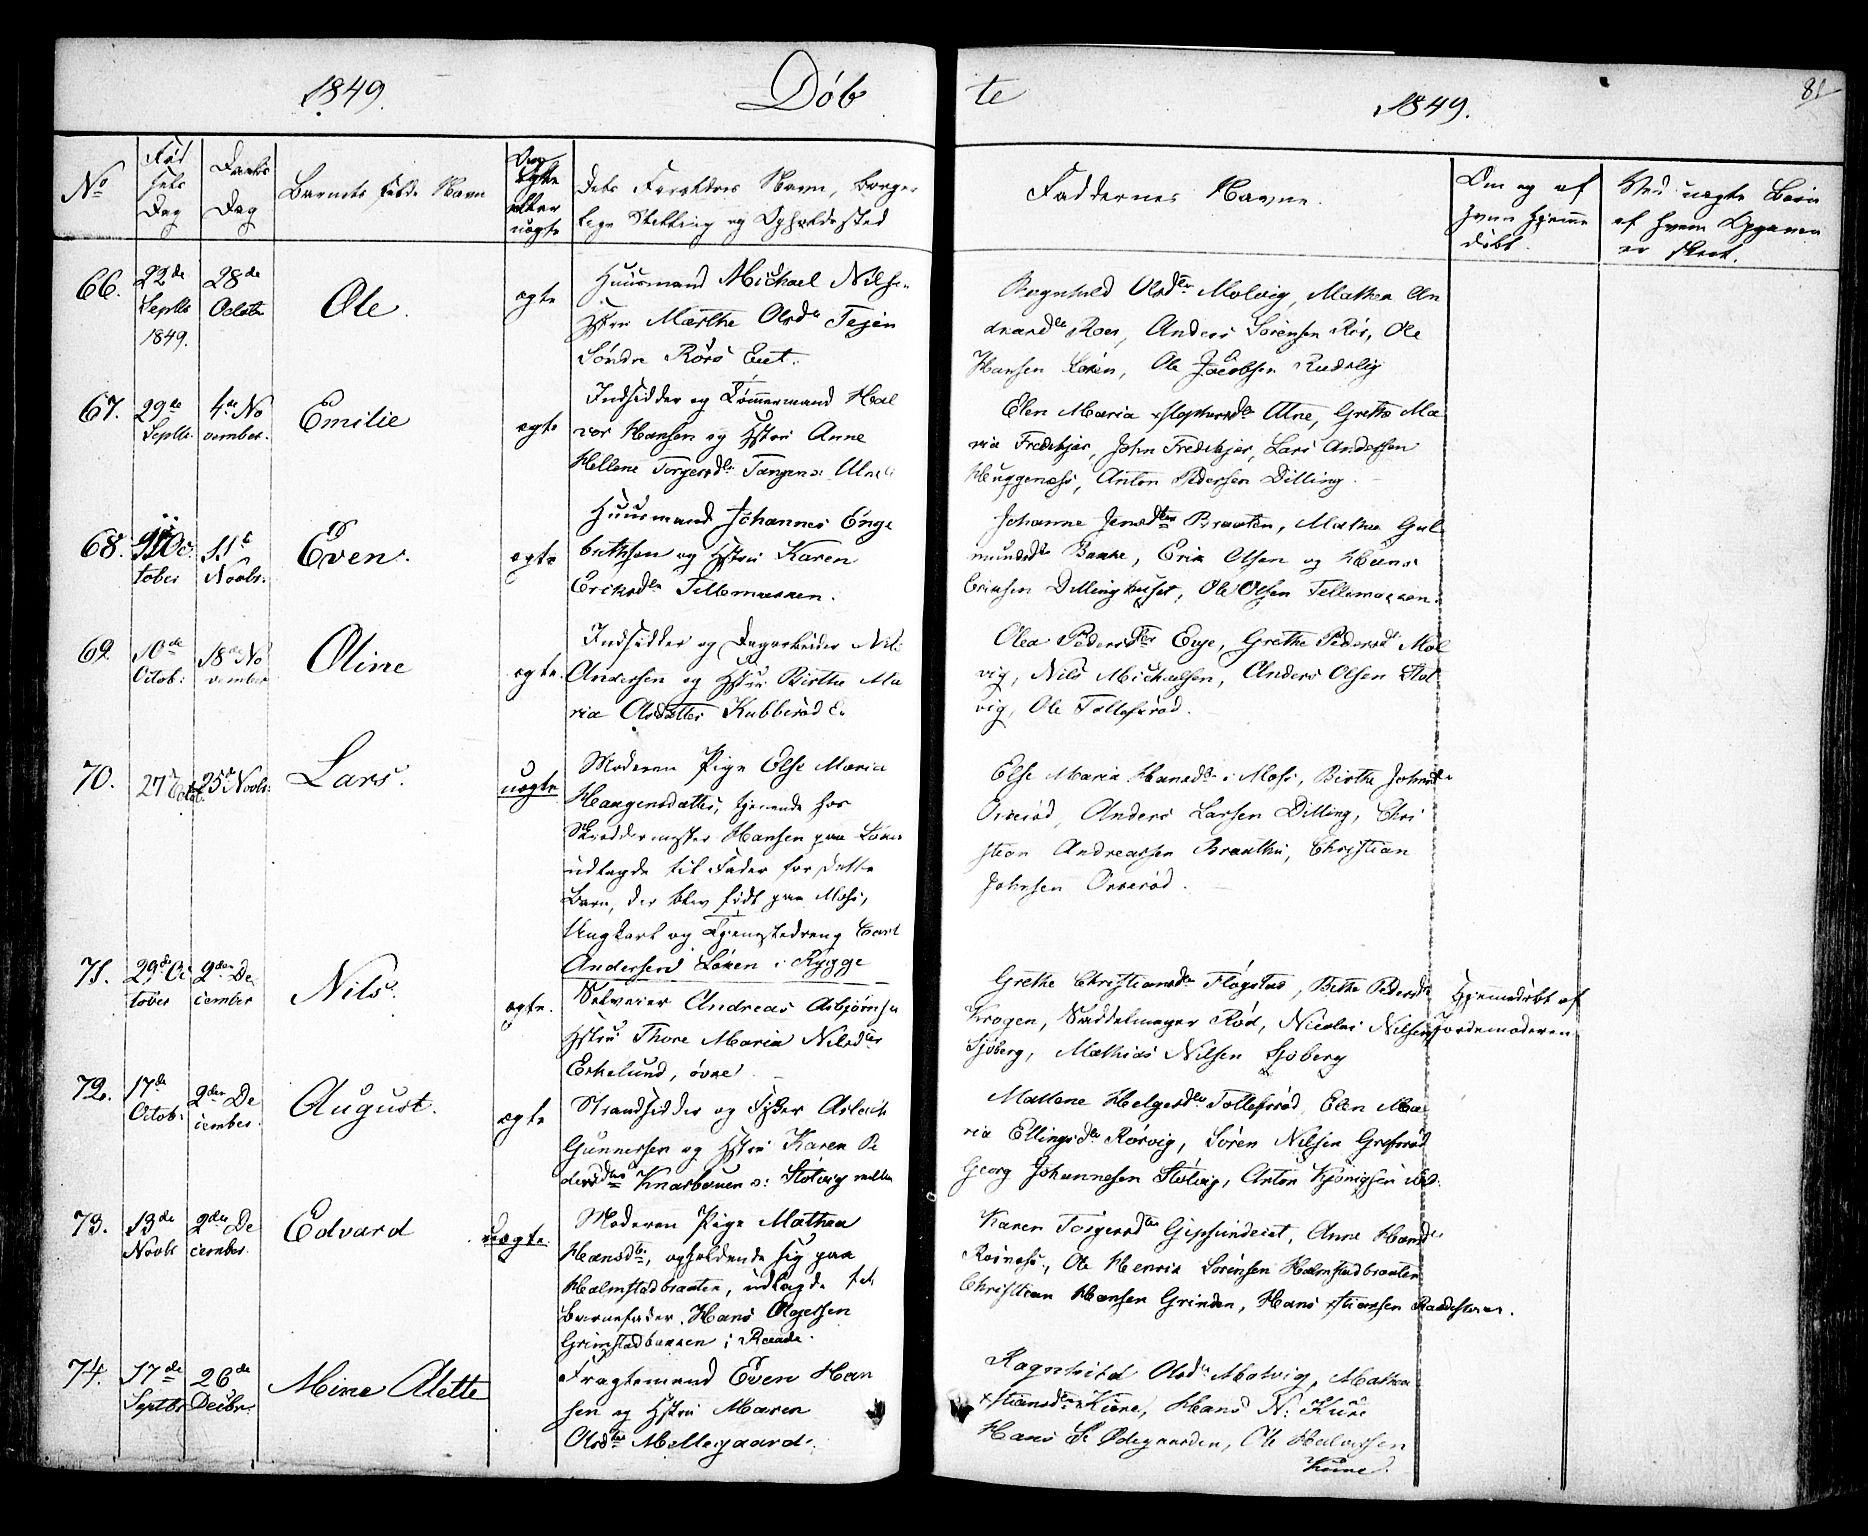 1849.
Døb
te
1849.
81
No
Fød
sels
Dag
Daabs
Dag
Barnets fulde Navn
Om
ægte
eller
uægte
Dets Forældres Navn, borger
lige Stilling og Opholdssted
Faddernes Navne.
Om og af
hvem hjemme
døbt.
Ved uægte Børn
af hvem Opgaven
er skeet.
66.
22de
Septbr
1849.
28de
Octobr
Ole.
ægte
Huusmand Michael Nilsen
Hstru Marthe Olsdr Tejen
Søndre Rörs Eiet.
Ragnhild Olsdtr Molvig, Mathea An
Anders Sörensen Rör, Ole
Hansen Löken, Ole Jacobsen
67.
29de
Septbr.
4de No
vember.
Emilie
ægte
Indsidder og Tømmermand Hal
vor Hansen og Hstru Anne
Hellene Torgersdr
Elen Maria Grethe Ma
ria Fredskjær, John Fredskjær, Lars Anderssen
Huggenæss, Anton Pedersen Dilling.
68.
Oc
tober
11te
Novbr.
Even.
ægte
Huusmand Johannes Enge
brethsen og Hstru Karen
Eriksdr Tellemarken.
Johanne Jensdter Braaten, Mathea Gul
mundsdtr Bakke, Erik Olsen og Hans
Eriksen Dillinghuset, Ole Olsen Tellemarken.
69.
10de
Octob:
18de No
vember
Oline
ægte.
Indsidder og Dagarbeider Nils
Andersen og Hstru Birthe Ma
ria Olsdatter Kubberød
Olea Pedersdter Enge, Grethe Pedersdr Mol
vig, Nils Michaelsen, Anders Olsen Stöt
vig, Ole Tollefsrød.
70.
27 Octob.
25de Novbr.
Lars.
uægte
Moderen Pige Else Maria
Haagensdatter, tjenende hos
Skræddermester Hansen paa Löken
udlagde til Fader for dette
Barn, der blev født paa Moss,
Ungkarl og Tjenestedreng Carl
Andersen Löken i Rygge
Else Maria Hansdr i Moss, Birthe Johnsdr
Orverød, Anders Larsen Dilling, Chri
stian Andreassen Braathe, Christian
Johnsen Orverød.
71.
29de Oc
tober
2den De
cember
Nils.
ægte.
Selveier Andreas Asbjörnsen
Hstru Thore Maria Nilsdtr
Eskelund, øvre
Grethe Christiansdr Flögstad, Berthe Pedersdr
Krogen, Saddelmager Röd, Nicolai Nilsen
Sjöberg, Mathias Nilsen Sjöberg
Hjemmedöbt af
Jordemoderen
72.
17de
Octob:
2den De
cember.
August.
ægte
Strandsidder og Fisker Aslak
Gunnersen og Hstru Karen Pe
dersdtr Knarberven o: Støtvig mellem
Mallene Helgesdtr Tollefsröd, Elen Ma
ria Ellingsdtr Rörvig, Sören Nilsen Grefsröd
Georg Johannesen Støtvig, Anton ibid.
73.
13de
Novbr
2den De
cember.
Edvard
uægte.
Moderen Pige Mathea
Hansdtr, opholdende sig paa
Halmstadbraaten, udlagde til
Barnefader, Hans Aagessen
Grimstadbakken i Raade.
Karen Torgersdtr Gipsundeiet, Anne Hansdr
Rosnæss, Ole Henrik Sörensen Halmstadbraaten
Christian Hansen Grinden, Hans
74.
17de
Septbr
26de
Decbr.
Mine Alette
Fragtemand Even Han
sen og Hstru Maren
Olsdtr Mellegaard.
Ragnhild Olsdr Molvig, Mathea
xstiansdtr Kure, Hans N: Kure
Hans Ødegaarden, Ole Halvorsen
Kure.